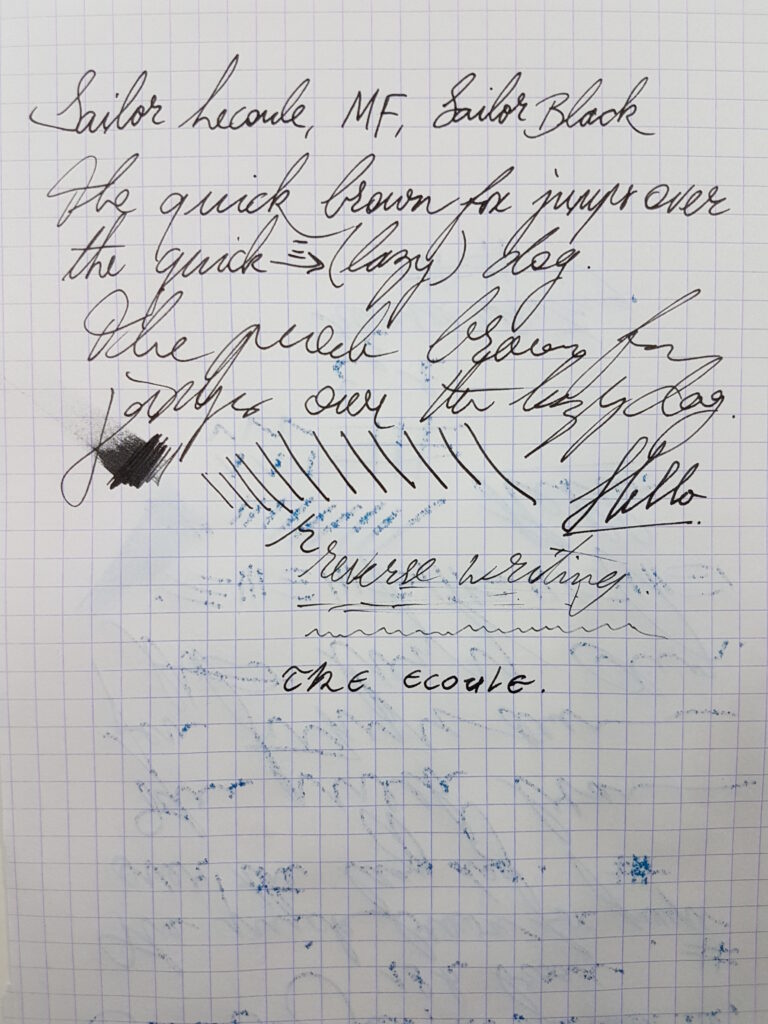 Sailor Lecoule, MF, Sailor Black
The quick brown fox jumps over
the quick ⇒ (lazy) dog.
The quick brown fox
jumps over the lazy dog.
Hello
reverse writing.
THE ECOULE.